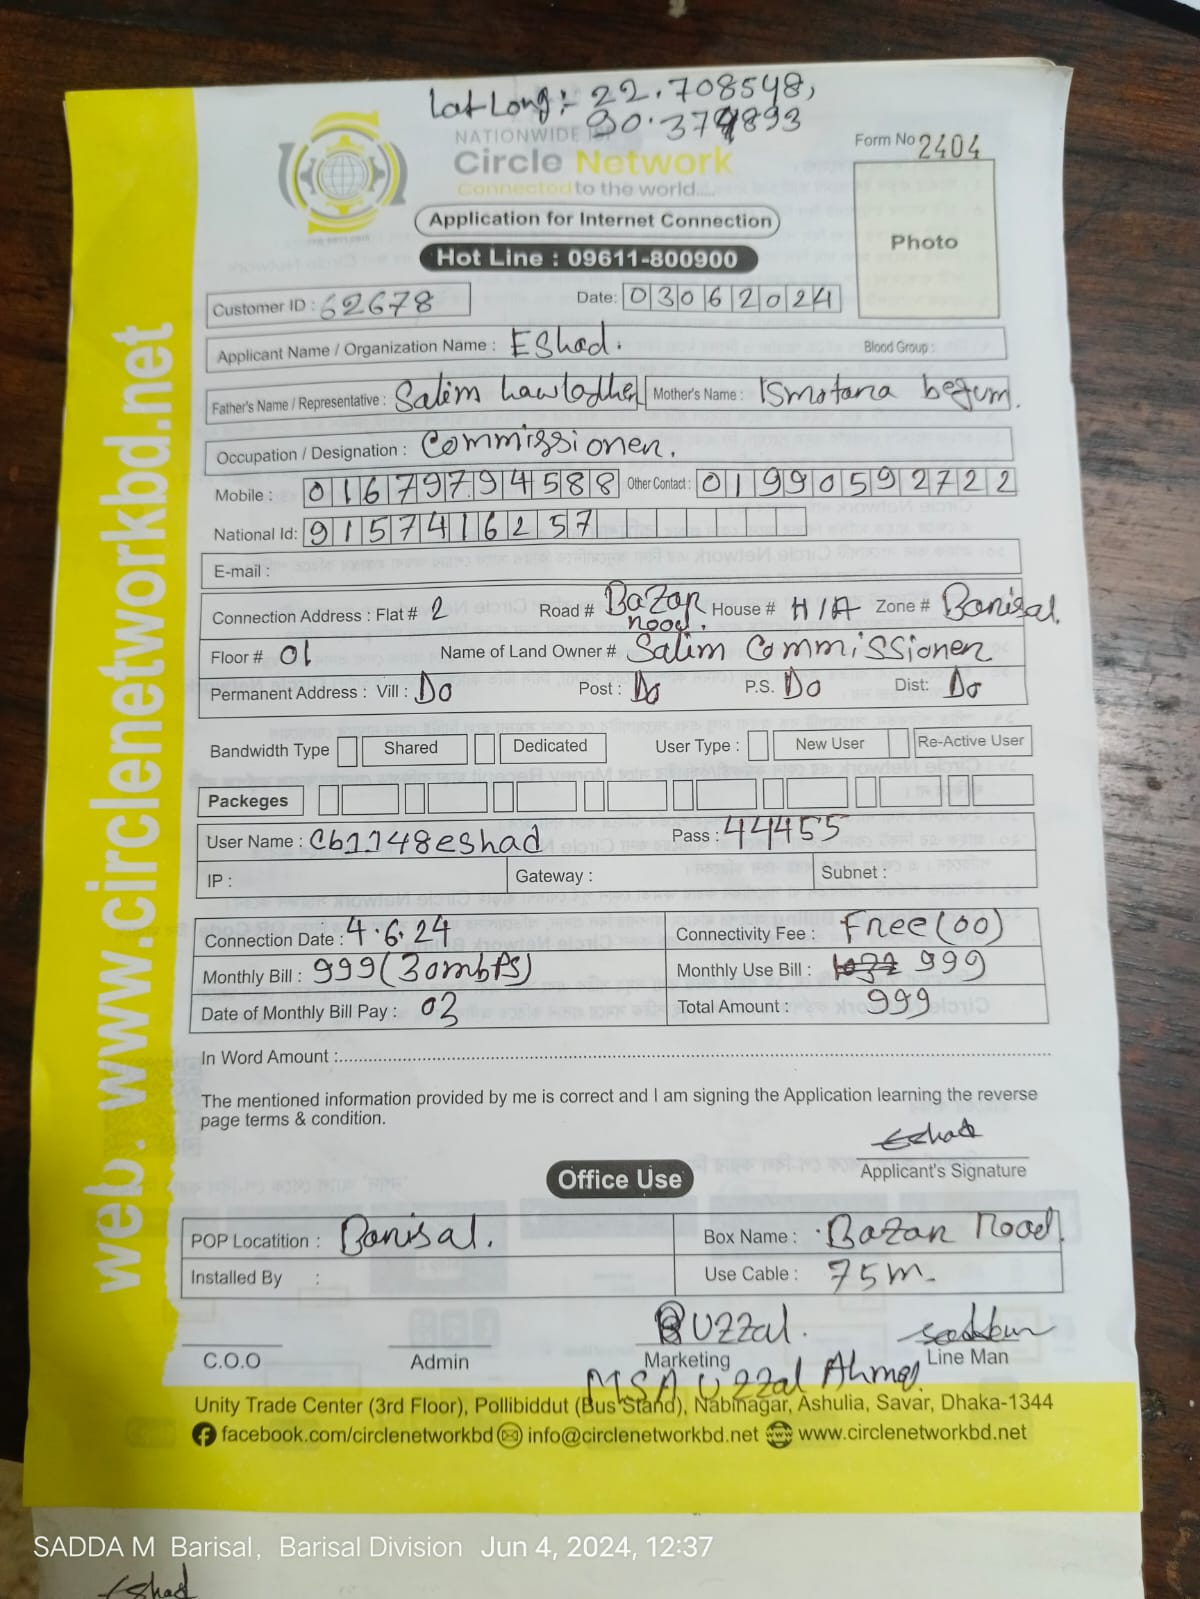 Lat Long :- 22.708548,
90.374893
NATIONWIDE ISP
Circle Network
Connected to the world.....
Form No 2404
Application for Internet Connection
Photo
Hot Line : 09611-800900
Customer ID : 62678 Date: 03062024
Applicant Name / Organization Name : Eshad. Blood Group :
Father's Name / Representative : Salim hawladher Mother's Name : Ismotara begum.
Occupation / Designation : Commissioner.
Mobile : 01679794588 Other Contact : 01990592722
National Id: 9157416257
E-mail :
Connection Address : Flat # 2 Road # Bazar road. House # H/A Zone # Barisal.
Floor # 01 Name of Land Owner # Salim Commissioner
Permanent Address : Vill : Do Post : Do P.S. Do Dist: Do
Bandwidth Type Shared Dedicated User Type : New User Re-Active User
Packeges
User Name : Cb1148eshad Pass : 44455
IP : Gateway : Subnet :
Connection Date : 4.6.24 Connectivity Fee : Free (00)
Monthly Bill : 999 (30mbps) Monthly Use Bill : 999
Date of Monthly Bill Pay : 03 Total Amount : 999
In Word Amount :
The mentioned information provided by me is correct and I am signing the Application learning the reverse
page terms & condition.
Eshad
Applicant's Signature
Office Use
POP Locatition : Barisal. Box Name : Bazar Road.
Installed By : Use Cable : 75m.
UZZal. Saddam
C.O.O Admin Marketing Line Man
MSA Uzzal Ahmed
Unity Trade Center (3rd Floor), Pollibiddut (Bus Stand), Nabinagar, Ashulia, Savar, Dhaka-1344
facebook.com/circlenetworkbd info@circlenetworkbd.net www.circlenetworkbd.net
web: www.circlenetworkbd.net
SADDA M Barisal, Barisal Division Jun 4, 2024, 12:37
Eshad